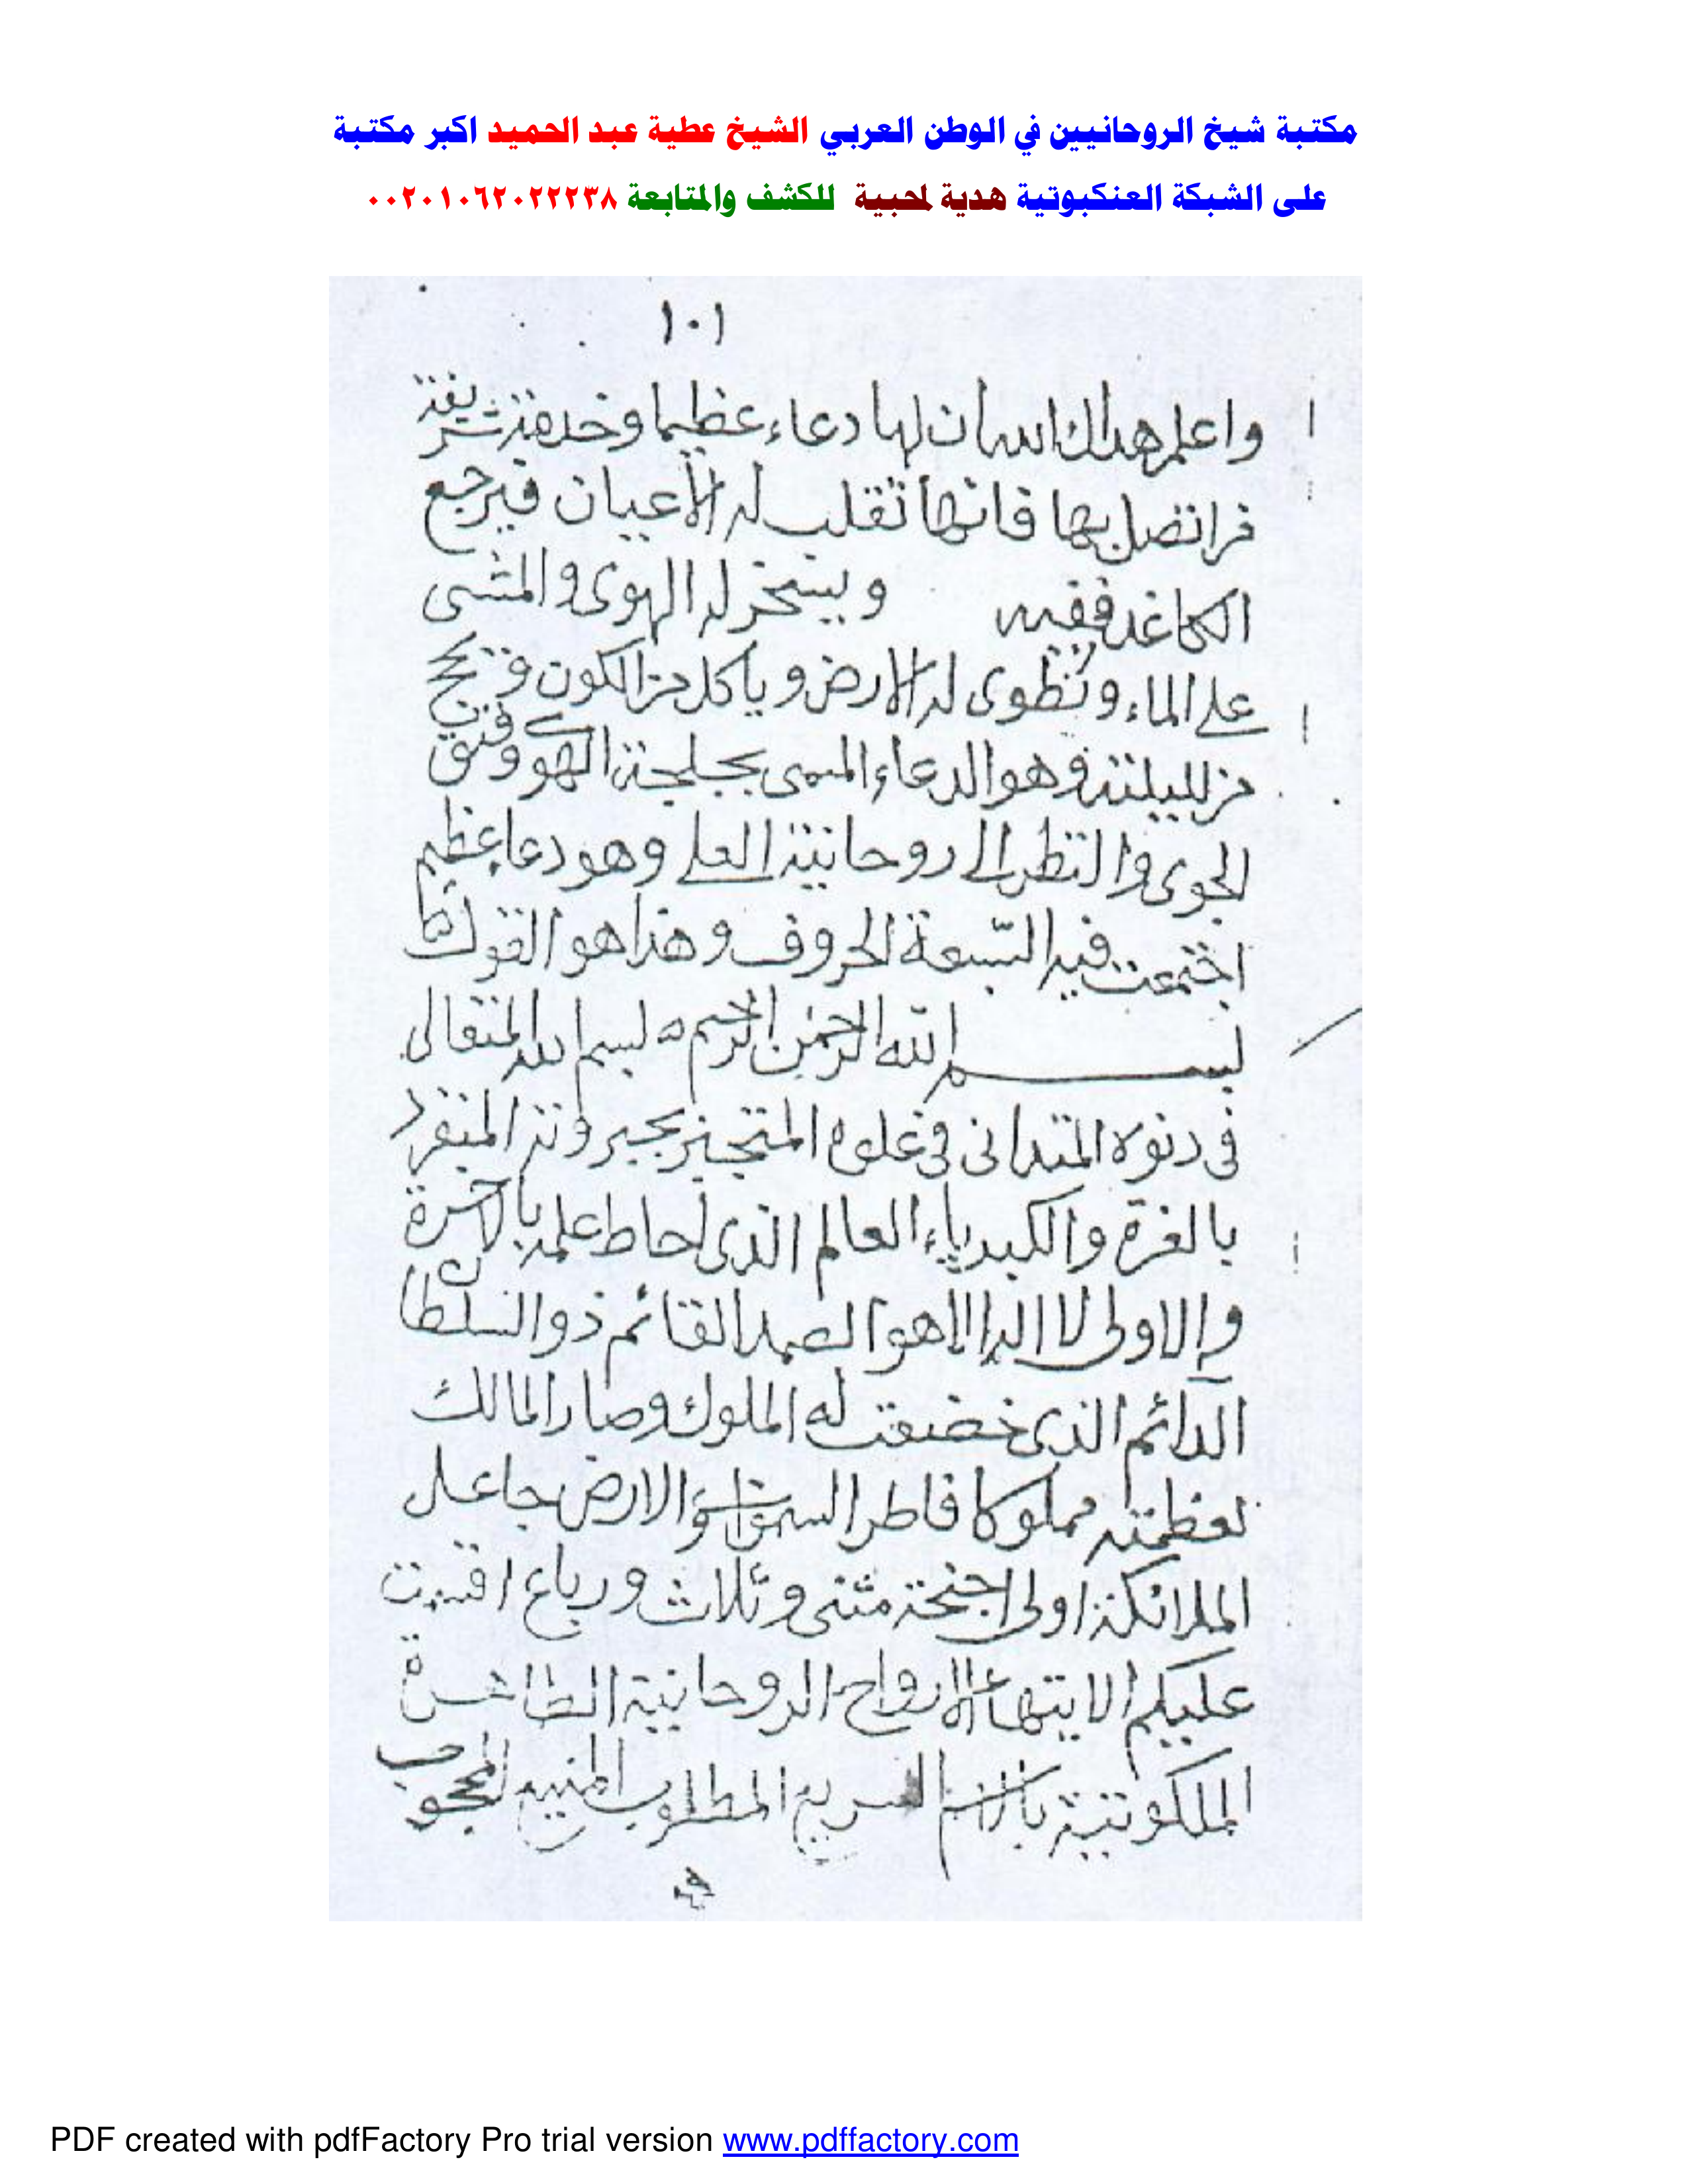 مكتبة شيخ الروحانيين في الوطن العربي الشيخ عطية عبد الحميد اكبر مكتبة
على الشبكة العنكبوتية هدية لمحبية للكشف والمتابعة ٠٠٢٠١٠٦٢٠٢٢٢٣٨
١٠١
واعلم هداك الله ان لها دعاء عظيما وخدمة شريفة
فمن اتصل بها فانها تقلب له الأعيان فيرجع
الكاغد ويسخر له الهوى والمشى
على الماء وتطوى له الارض وياكل من الكون
من ليلته وهو الدعاء المسمى
والنظر الى روحانية العلى وهو دعاء عظيم
اجتمعت فيه التسعة الحروف وهذا هو القول
بسم الله الرحمن الرحيم بسم الله المتعالى
فى دنوه المتدانى فى علوه المتجبر بجبروته المنفرد
بالعزة والكبرياء العالم الذى احاط علمه بالآخرة
والاولى لا اله الا هو الصمد القائم ذو السلطان
الدائم الذى خضعت له الملوك وصار المالك
لعظمته مملوكا فاطر السموات والارض جاعل
الملائكة اولى اجنحة مثنى وثلاث ورباع اقسمت
عليكم الا يتها الارواح الروحانية الطاهرة
الملكوتية بالاسم السريع المطلوب المنيع
PDF created with pdfFactory Pro trial version www.pdffactory.com